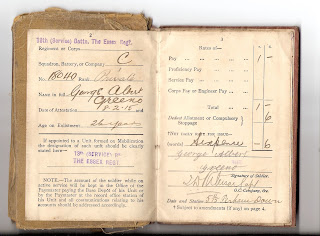 (Service) Battn. The Essex Regt.
Regiment or Corps
Squadron, Battery, or Company C
No. Private
Name in full George Albert
Greeno
Date of Attestation 2-15
Age on Enlistment
If appointed in a Unit formed on Mobilization
the designation of such Unit should be clearly
stated here—
(SERVICE) B
THE ESSEX REGT
NOTE.—The account of the soldier while on
active service will be kept in the Office of the
Paymaster paying the Base Depôt of his Unit or
by the Paymaster of the head office station of his
Unit and all communications relating to his
accounts should be addressed accordingly.
3
Rates of—
Pay 1 —
Proficiency Pay
Service Pay
Corps Pay or Engineer Pay
Total 1 —
Deduct Allotment or Compulsory
Stoppage 6
*Net daily rate for issue— 6
Sixpence
George Albert
Greeno
Signature of Soldier.
O.C. Company, &c.
Date and Station
* Subject to amendments (if any) on page 4.